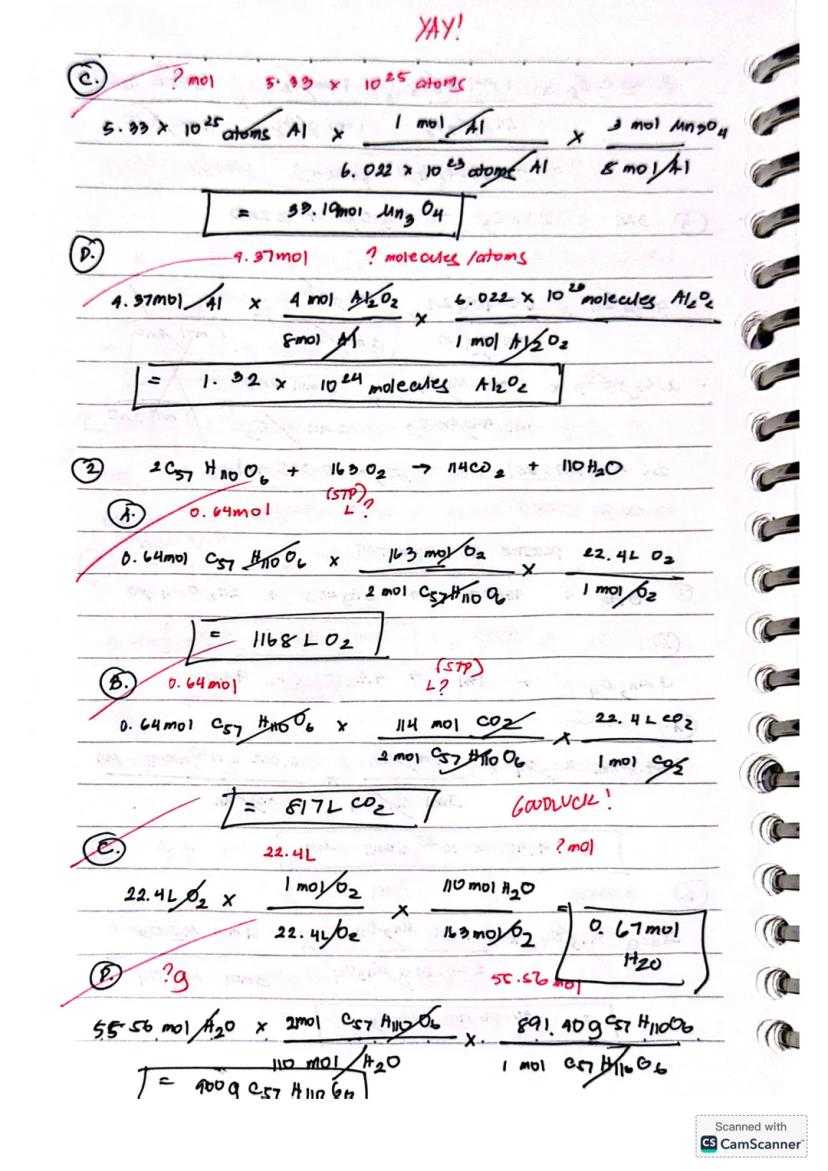 YAY!
C. ? mol 5.33 x 10^25 atoms
5.33 x 10^25 atoms Al x 1 mol Al / 6.022 x 10^23 atoms Al x 3 mol Mn3O4 / 8 mol Al
= 33.19mol Mn3O4
D. 4.37mol ? molecules/atoms
4.37mol Al x 4 mol Al2O2 / 8mol Al x 6.022 x 10^23 molecules Al2O2 / 1 mol Al2O2
= 1.32 x 10^24 molecules Al2O2
2 2C57H110O6 + 163O2 → 114CO2 + 110H2O
A. 0.64mol (STP) L?
0.64mol C57H110O6 x 163 mol O2 / 2 mol C57H110O6 x 22.4L O2 / 1 mol O2
= 1168 L O2
B. 0.64mol (STP) L?
0.64mol C57H110O6 x 114 mol CO2 / 2 mol C57H110O6 x 22.4L CO2 / 1 mol CO2
= 817L CO2 GOODLUCK!
C. 22.4L ? mol
22.4L O2 x 1 mol O2 / 22.4L O2 x 110 mol H2O / 163 mol O2 = 0.67mol H2O
D. ?g 55.56 mol
55.56 mol H2O x 2mol C57H110O6 / 110 mol H2O x 891.40g C57H110O6 / 1 mol C57H110O6
= 900g C57H110O6
Scanned with
CS CamScanner